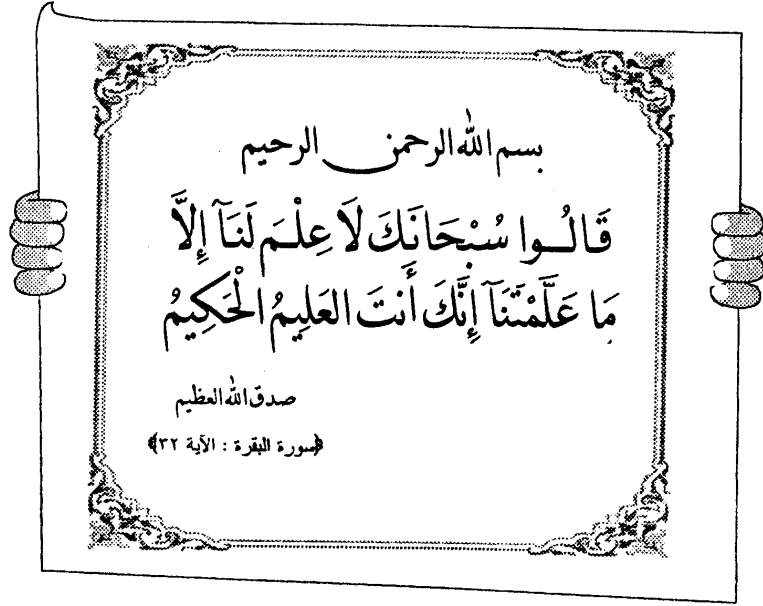 بسم الله الرحمن الرحيم
قَالُــوا سُبْحَانَكَ لَا عِلْـمَ لَنَآ إِلَّا
مَا عَلَّمْتَنَآ إِنَّكَ أَنتَ العَلِيمُ الْحَكِيمُ
صدق الله العظيم
﴿سورة البقرة : الآية ٣٢﴾